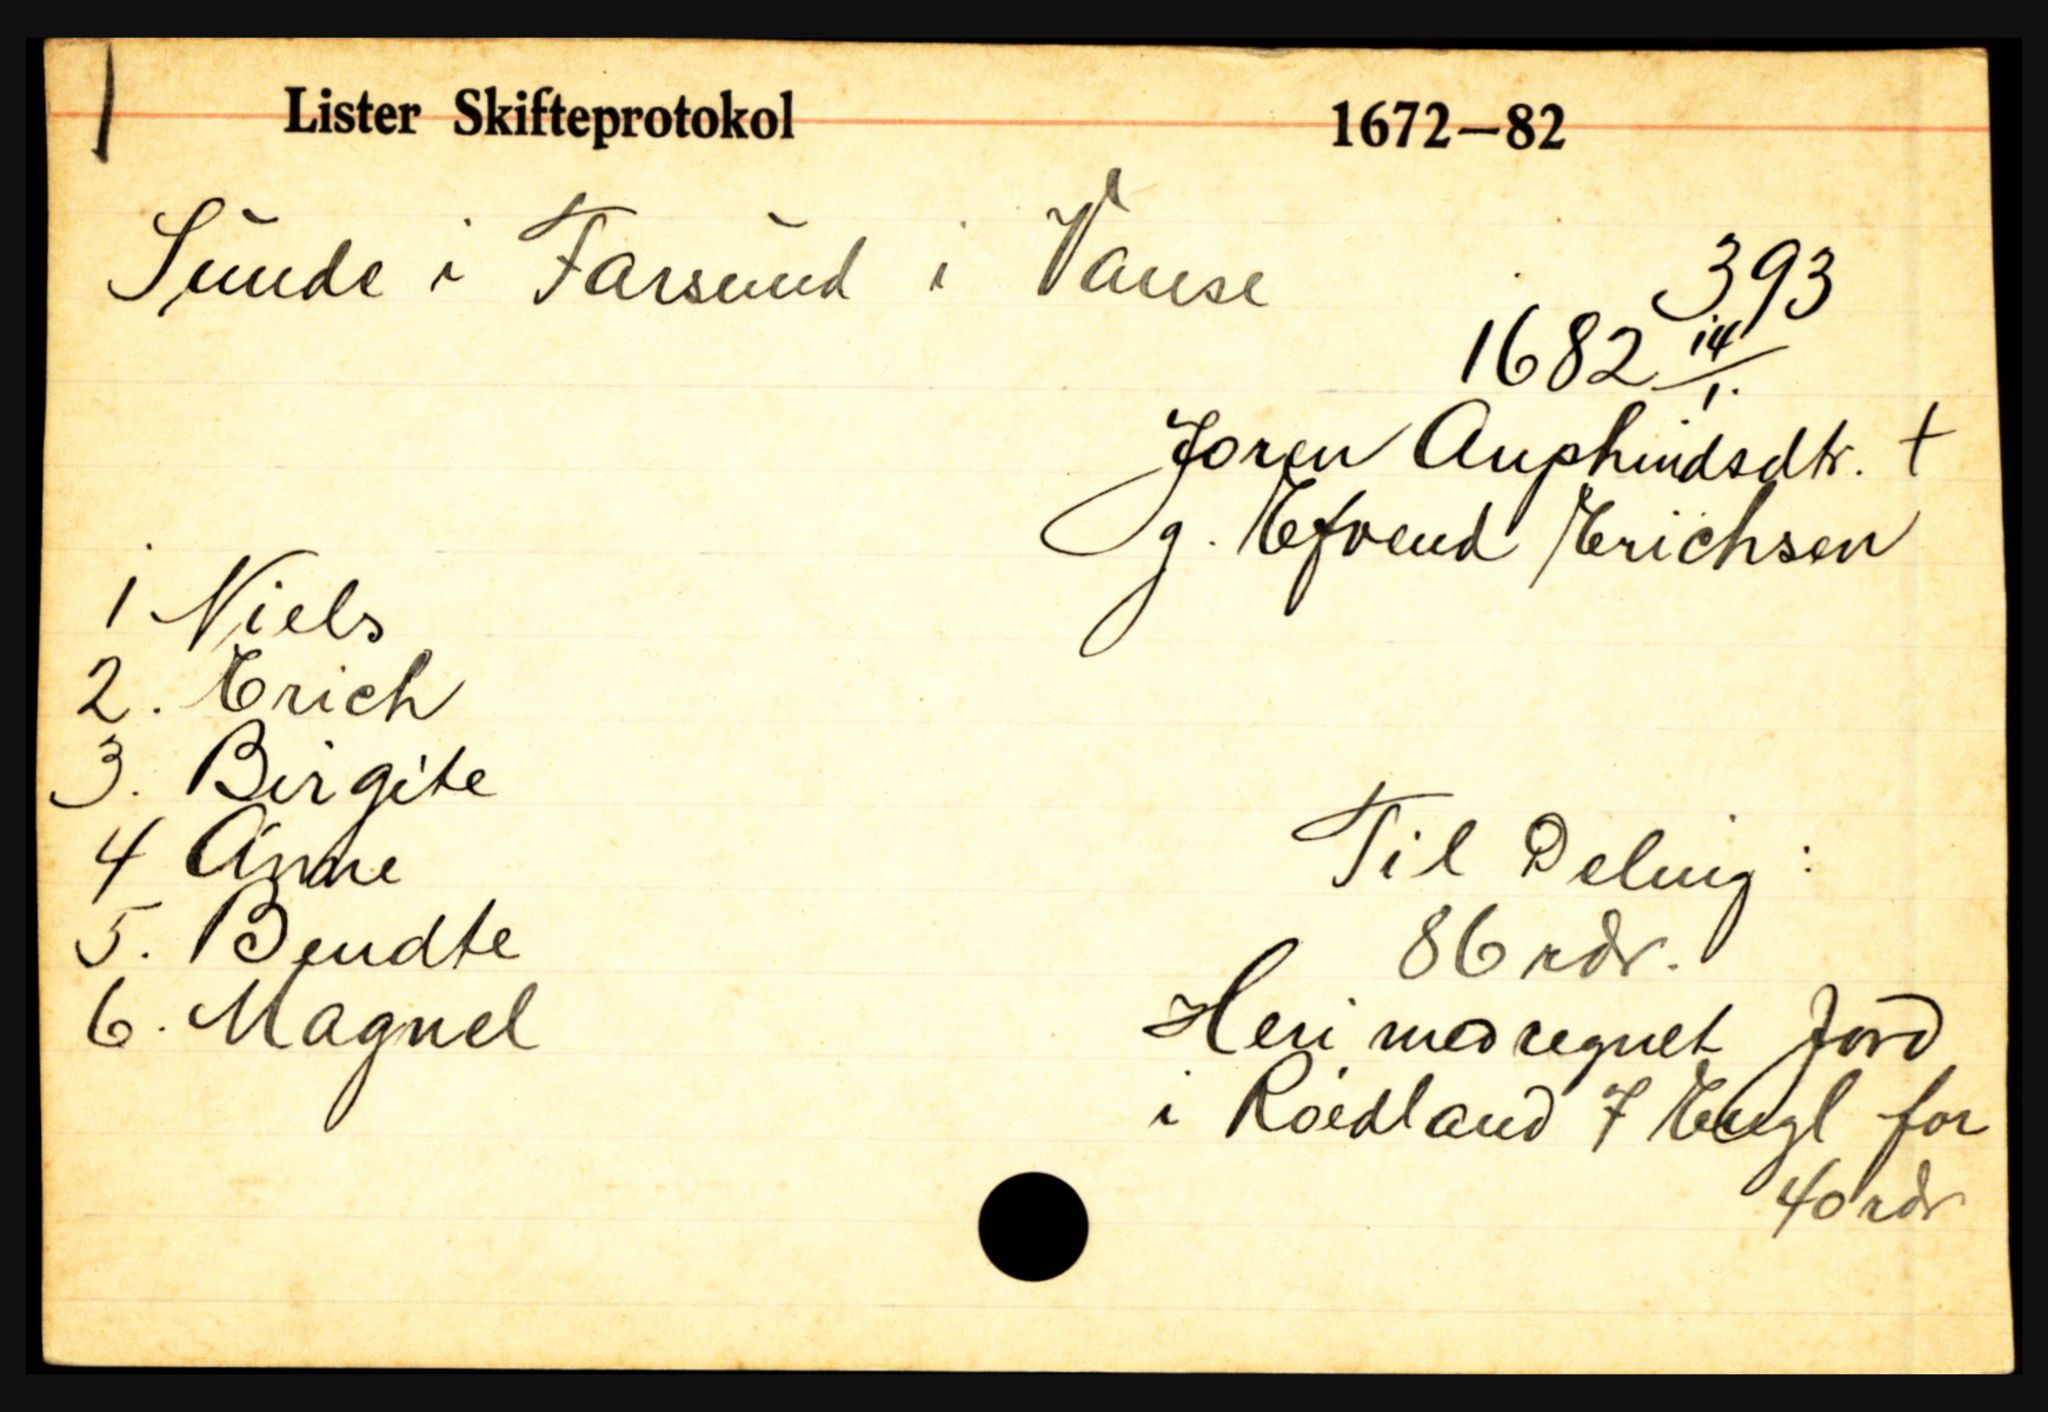 1
Lister Skifteprotokol 1672–82
Sunde i Farsund i Vanse
393
1682 14/1.
Joren Anphindsdtr. †
g. Efvend Erichsen
1 Niels
2. Erich
3. Birgite
4 Anne
5. Bendte
6. Magnel
Til Deling :
86 rdr.
Heri medregnet Jord
i Röedland 7 Engl for
40 rdr